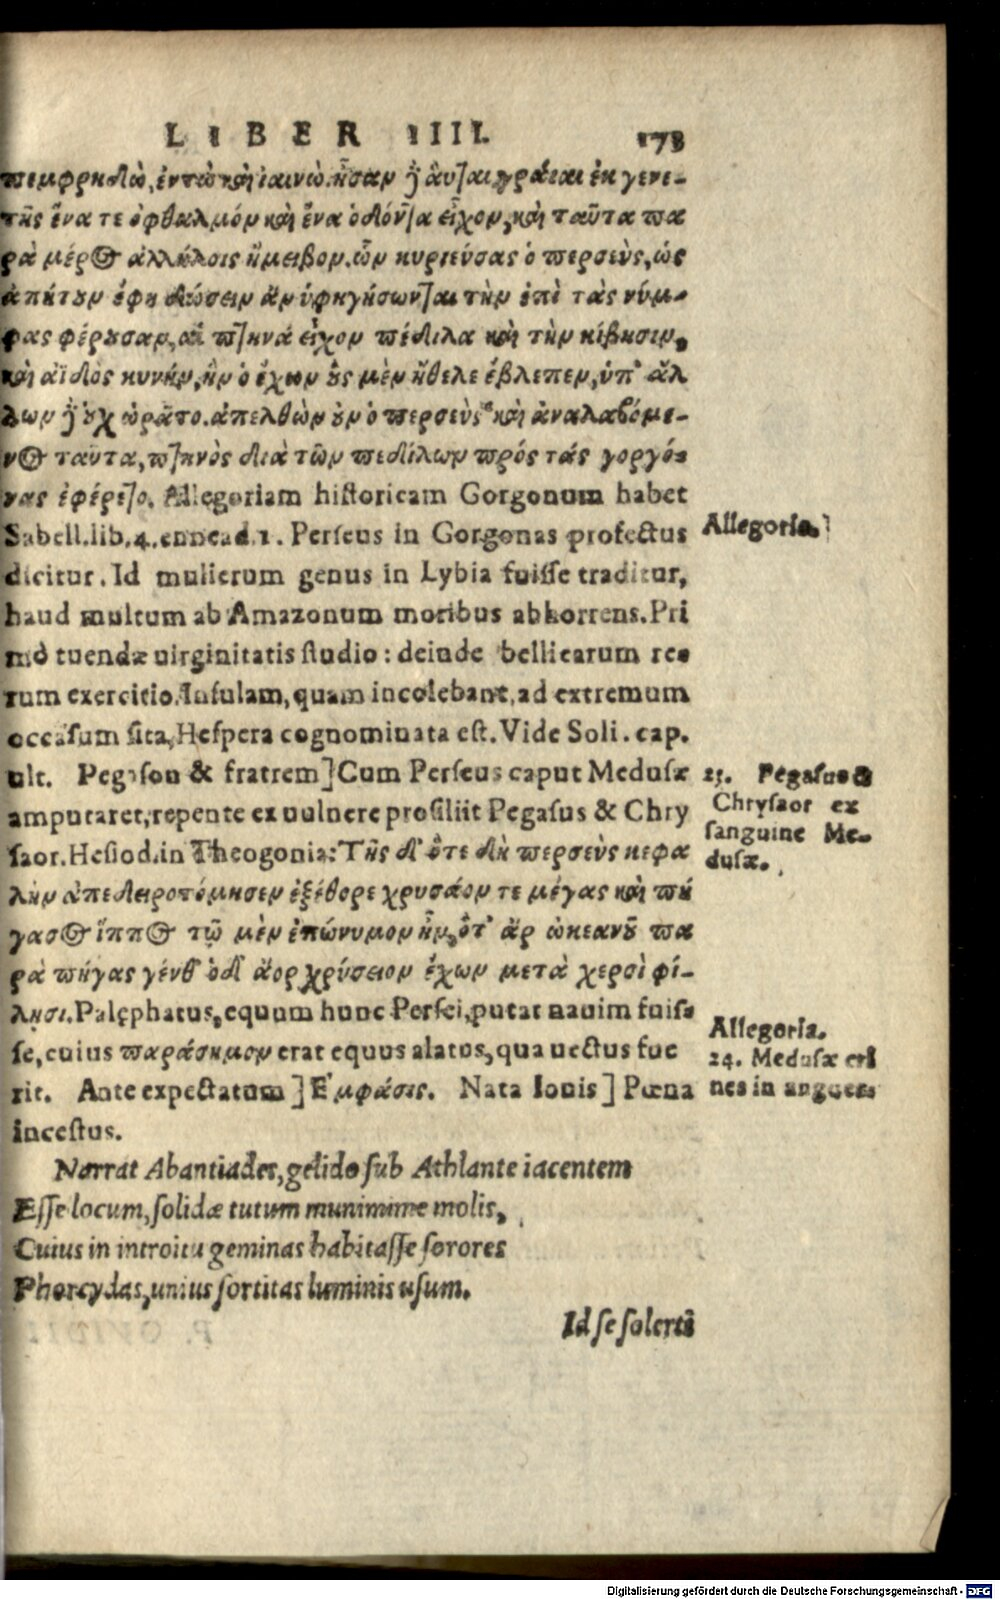 LIBER IIII. 178
πεμφρηδὼ, ἐντὼ καὶ ταινώ. ἦσαν ἢ αὗται γραῖαι ἐκ γενε-
τῆς ἕνα τε ὀφθαλμόν καὶ ἕνα ὀδόντα εἶχον, καὶ ταῦτα πα
ρὰ μέρος ἀλλήλοις ἤμειβον. ὧν κυριεύσας ὁ περσεὺς, ὡς
ἀπῄτουν ἐφη δώσειν ἂν ὑφηγήσωνται τὴν ἐπὶ τὰς νύμ-
φας φέρουσαν, αἳ πτηνά εἶχον πέδιλα καὶ τὴν κίβησιν,
καὶ αϊδος κυνήν, ἣν ὁ ἔχων οὓς μὲν ἤθελε ἔβλεπεν, ὑπ' ἄλ
λων δὲ οὐχ ὡρᾶτο. ἀπελθὼν οὖν ὁ περσεὺς καὶ ἀναλαβόμε-
νος ταῦτα, πτηνὸς διὰ τῶν πεδίλων πρός τάς γοργό-
νας ἐφέρετο. Allegoriam historicam Gorgonum habet
Sabell.lib.4.ennead.1. Perseus in Gorgonas profectus
dicitur. Id mulierum genus in Lybia fuisse traditur,
haud multum ab Amazonum moribus abhorrens. Pri
mò tuendæ uirginitatis studio: deinde bellicarum re-
rum exercitio. Insulam, quam incolebant, ad extremum
occasum sita, Hespera cognominata est. Vide Soli. cap.
ult. Pegason & fratrem] Cum Perseus caput Medusæ
amputaret, repente ex uulnere prosiliit Pegasus & Chry
saor. Hesiod. in Theogonia: Τῆς δ' ὅτε δὴ περσεὺς κεφα
λὴν ἀπεδειροτόμησεν ἐξέθορε χρυσάον τε μέγας καὶ πή
γασος ἵππος τῷ μὲν ἐπώνυμον ἦν, ὅτ' ἄρ ὠκεανοῦ πα
ρὰ πήγας γένθ' ὁδ' ἄορ χρύσειον ἔχων μετὰ χερσὶ φί-
λῃσι. Palęphatus, equum hunc Persei, putat nauim fuis-
se, cuius παράσημον erat equus alatus, qua uectus fue
rit. Ante expectatum] Ἐμφάσις. Nata Iouis] Pœna
incestus.
Narrat Abantiades, gelido sub Athlante iacentem
Esse locum, solidæ tutum munimine molis,
Cuius in introitu geminas habitasse sorores
Phorcydas, unius sortitas luminis usum.
Id se solerti
Allegoria.
23. Pegasus &
Chrysaor ex
sanguine Me-
dusæ.
Allegoria.
24. Medusæ cri
nes in angues
P. OVIDII
Digitalisierung gefördert durch die Deutsche Forschungsgemeinschaft - DFG